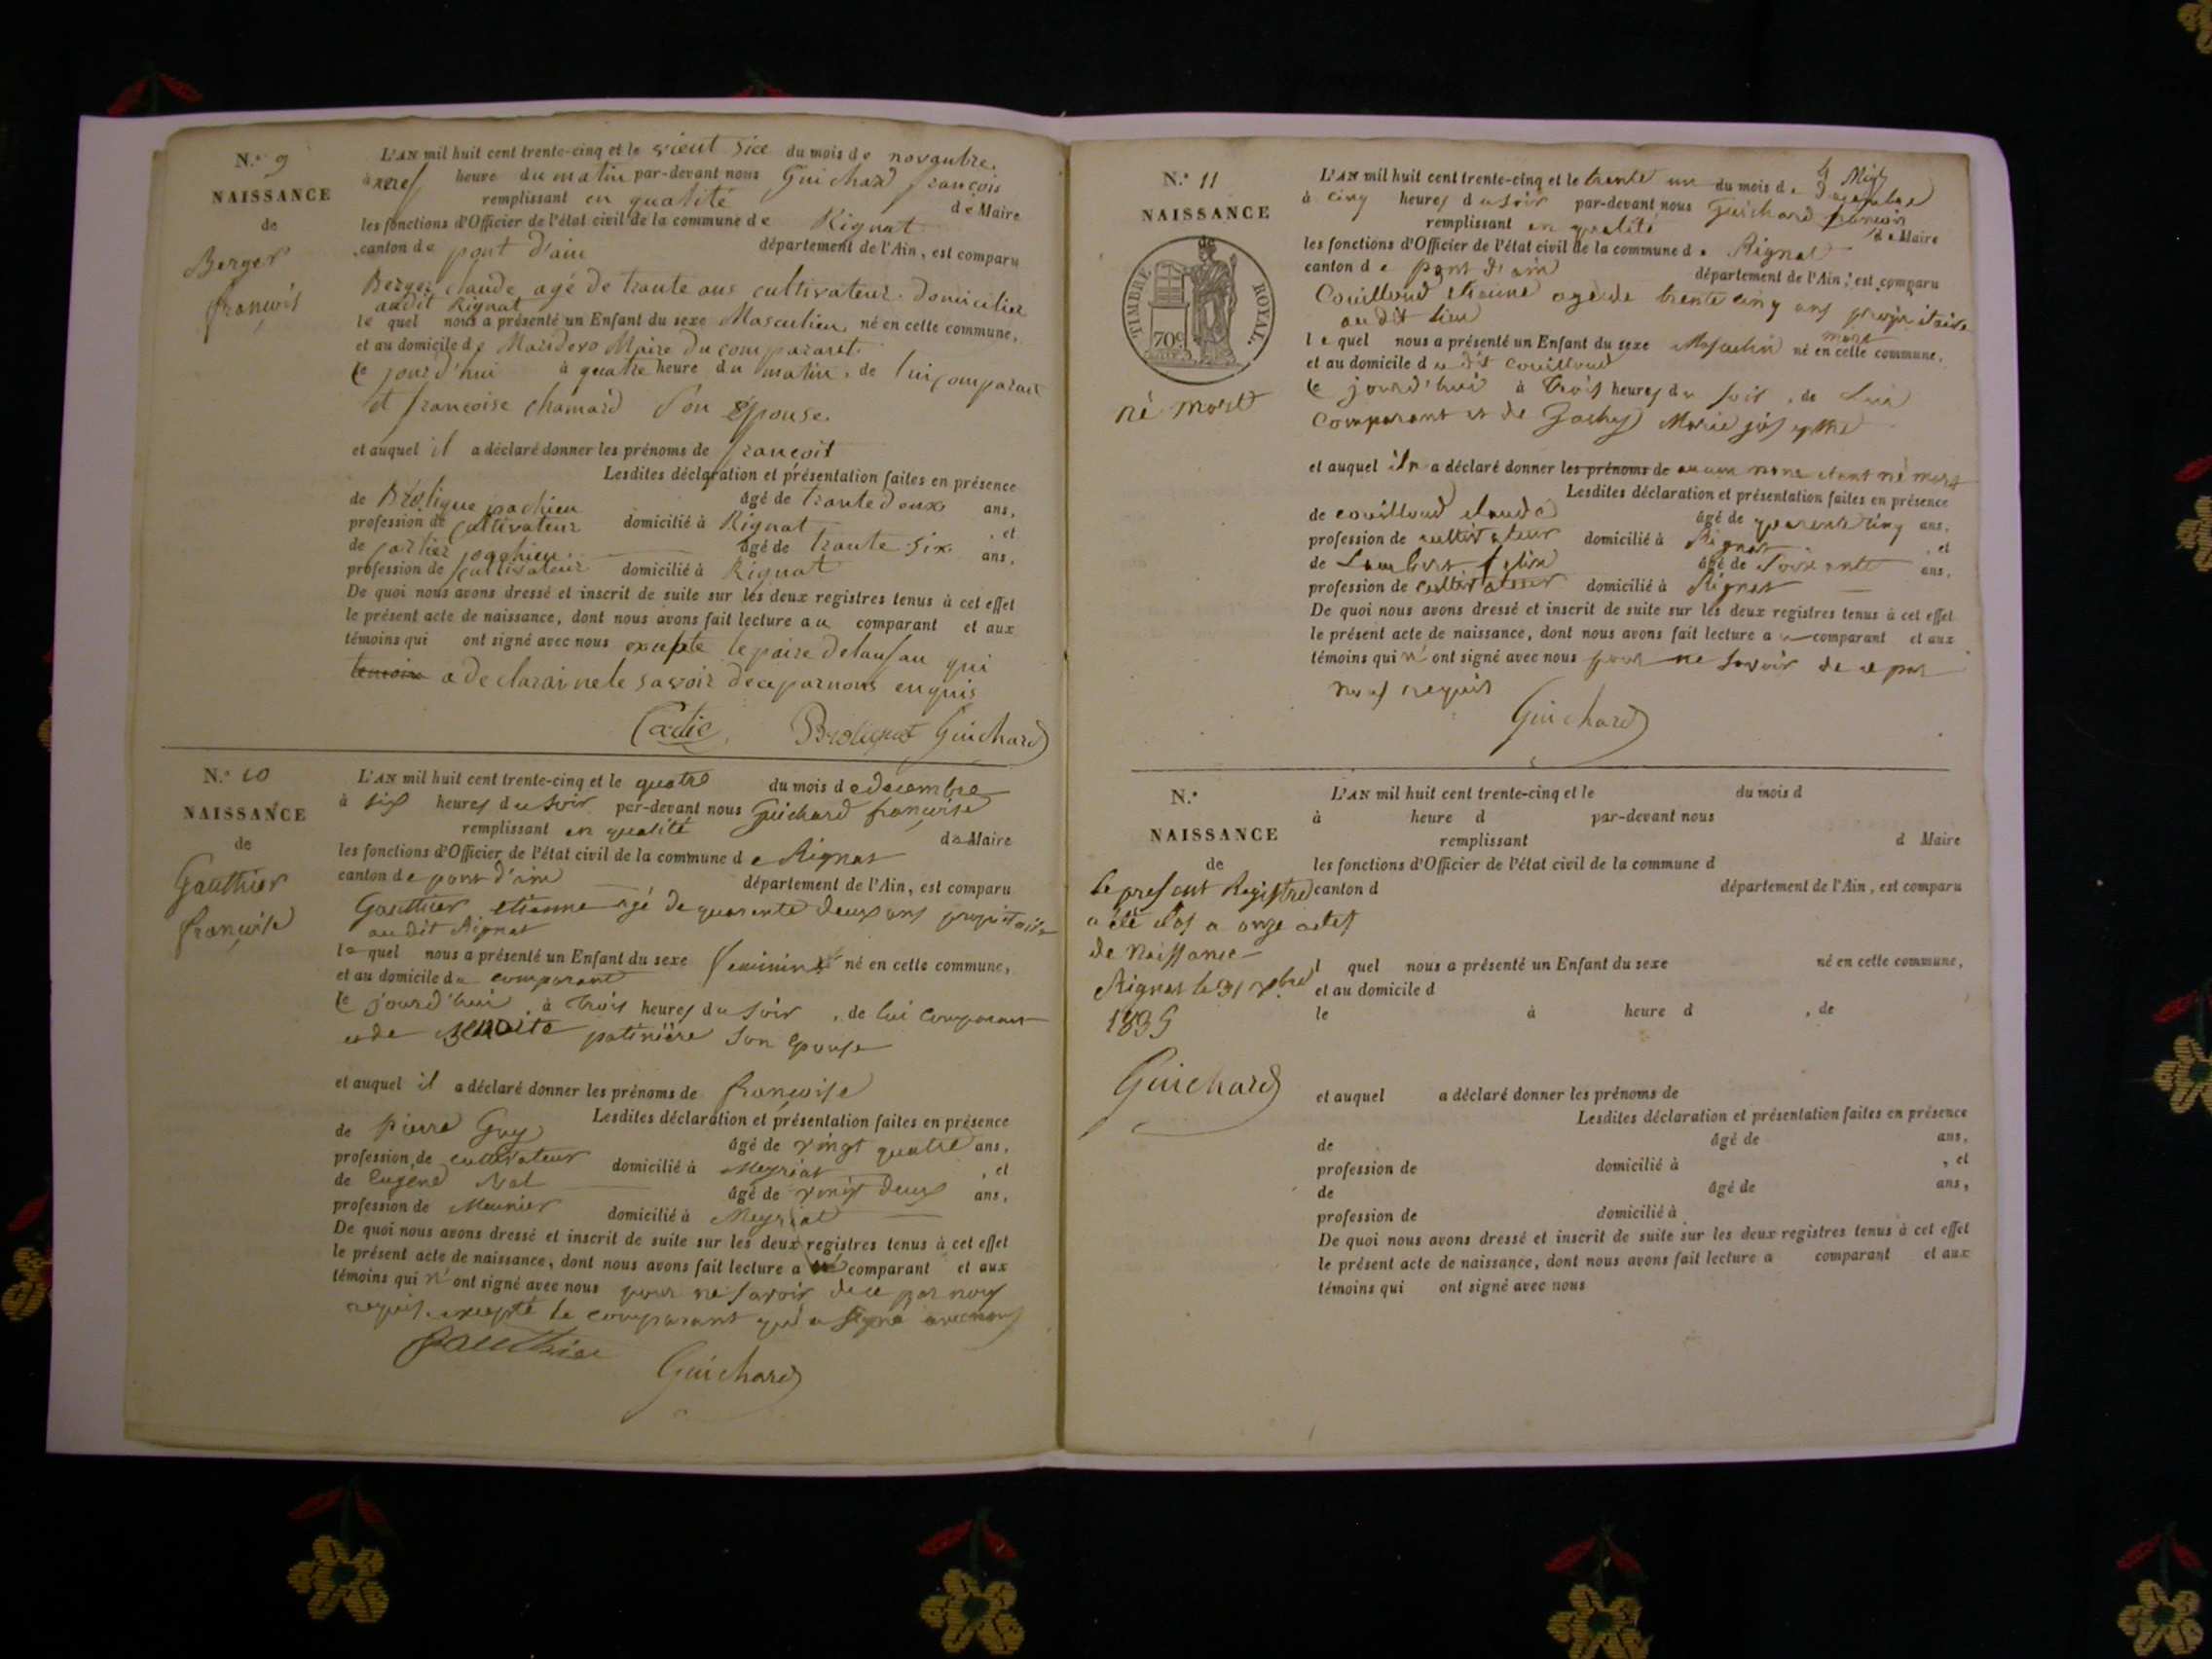 N.° 9
NAISSANCE
de
Berger
françois
L'AN mil huit cent trente-cinq et le vient sice du mois de novanbre.
heure du matin par-devant nous Guichard françois
remplissant en qualité de Maire
les fonctions d'Officier de l'état civil de la commune de Rignat
canton de pont d'ain département de l'Ain, est comparu
Berger claude agé de trante ans cultivateur domicilier
audit Rignat
le quel nous a présenté un Enfant du sexe Masculien né en cette commune,
et au domicile de Maire du comparant
Ce jourd'hui à quatre heure du matin, de lui comparant
et francoise chamard son Epouse.
et auquel il a déclaré donner les prénoms de françoit
Lesdites déclaration et présentation faites en présence
de Brolique joachien âgé de trante deux ans,
profession de cultivateur domicilié à Rignat, et
de joachien. âgé de trante six ans,
profession de cultivateur domicilié à Rignat
De quoi nous avons dressé et inscrit de suite sur les deux registres tenus à cet effet
le présent acte de naissance, dont nous avons fait lecture au comparant et aux
témoins qui ont signé avec nous exepte le paire de lanfan qui
temoin a declarai ne le savoir de ce par nous enquis
Brolique Guichard
N.° 10
NAISSANCE
de
Gauthier
françoise
L'AN mil huit cent trente-cinq et le quatre du mois de decembre
à six heures du soir par-devant nous Guichard françoise
remplissant en qualité de Maire
les fonctions d'Officier de l'état civil de la commune de Rignat
canton de pont d'ain département de l'Ain, est comparu
Gauthier etienne agé de quarente deux ans propriétaire
au dit Rignat
le quel nous a présenté un Enfant du sexe feminin né en cette commune,
et au domicile du comparant
Ce jourd'hui à trois heures du soir, de lui comparant
et de Benoite patinière son épouse
et auquel il a déclaré donner les prénoms de françoise
Lesdites déclaration et présentation faites en présence
de pierre Guy âgé de vingt quatre ans,
profession de cultivateur domicilié à Meyriat, et
de Eugene âgé de vingt deux ans,
profession de Meunier domicilié à Meyriat
De quoi nous avons dressé et inscrit de suite sur les deux registres tenus à cet effet
le présent acte de naissance, dont nous avons fait lecture au comparant et aux
témoins qui n'ont signé avec nous pour ne savoir de ce par nous
requis. excepté le comparant qui a signé avec nous
Gauthier
Guichard
N.° 11
NAISSANCE
de
TIMBRE ROYAL.
70c
né mort
L'AN mil huit cent trente-cinq et le trente un du mois de decembre
à cinq heures du soir par-devant nous Guichard françois
remplissant en qualité de Maire
les fonctions d'Officier de l'état civil de la commune de Rignat
canton de pont d'ain département de l'Ain, est comparu
Couilloud etienne agé de trente cinq ans propriétaire
au dit lieu
le quel nous a présenté un Enfant du sexe Masculin né mort en cette commune,
et au domicile du dit couilloud
Ce jourd'hui à trois heures du soir, de lui
comparant et de Marie josephte
et auquel il n'a déclaré donner les prénoms de aucun nom etant né mort
Lesdites déclaration et présentation faites en présence
de couilloud claude âgé de quarente cinq ans,
profession de cultivateur domicilié à Rignat, et
de Lambert felix âgé de soixante ans,
profession de cultivateur domicilié à Rignat
De quoi nous avons dressé et inscrit de suite sur les deux registres tenus à cet effet
le présent acte de naissance, dont nous avons fait lecture au comparant et aux
témoins qui n'ont signé avec nous pour ne savoir de ce par
nous requis
Guichard
N.°
NAISSANCE
de
le present Registre
a été clos a onze actes
de Naissance
Rignat le 31 Xbre
1835
Guichard
L'AN mil huit cent trente-cinq et le du mois d
à heure d par-devant nous
remplissant d Maire
les fonctions d'Officier de l'état civil de la commune d
canton d département de l'Ain, est comparu
l quel nous a présenté un Enfant du sexe né en cette commune,
et au domicile d
le à heure d , de
et auquel a déclaré donner les prénoms de
Lesdites déclaration et présentation faites en présence
de âgé de ans,
profession de domicilié à , et
de âgé de ans,
profession de domicilié à
De quoi nous avons dressé et inscrit de suite sur les deux registres tenus à cet effet
le présent acte de naissance, dont nous avons fait lecture a comparant et aux
témoins qui ont signé avec nous